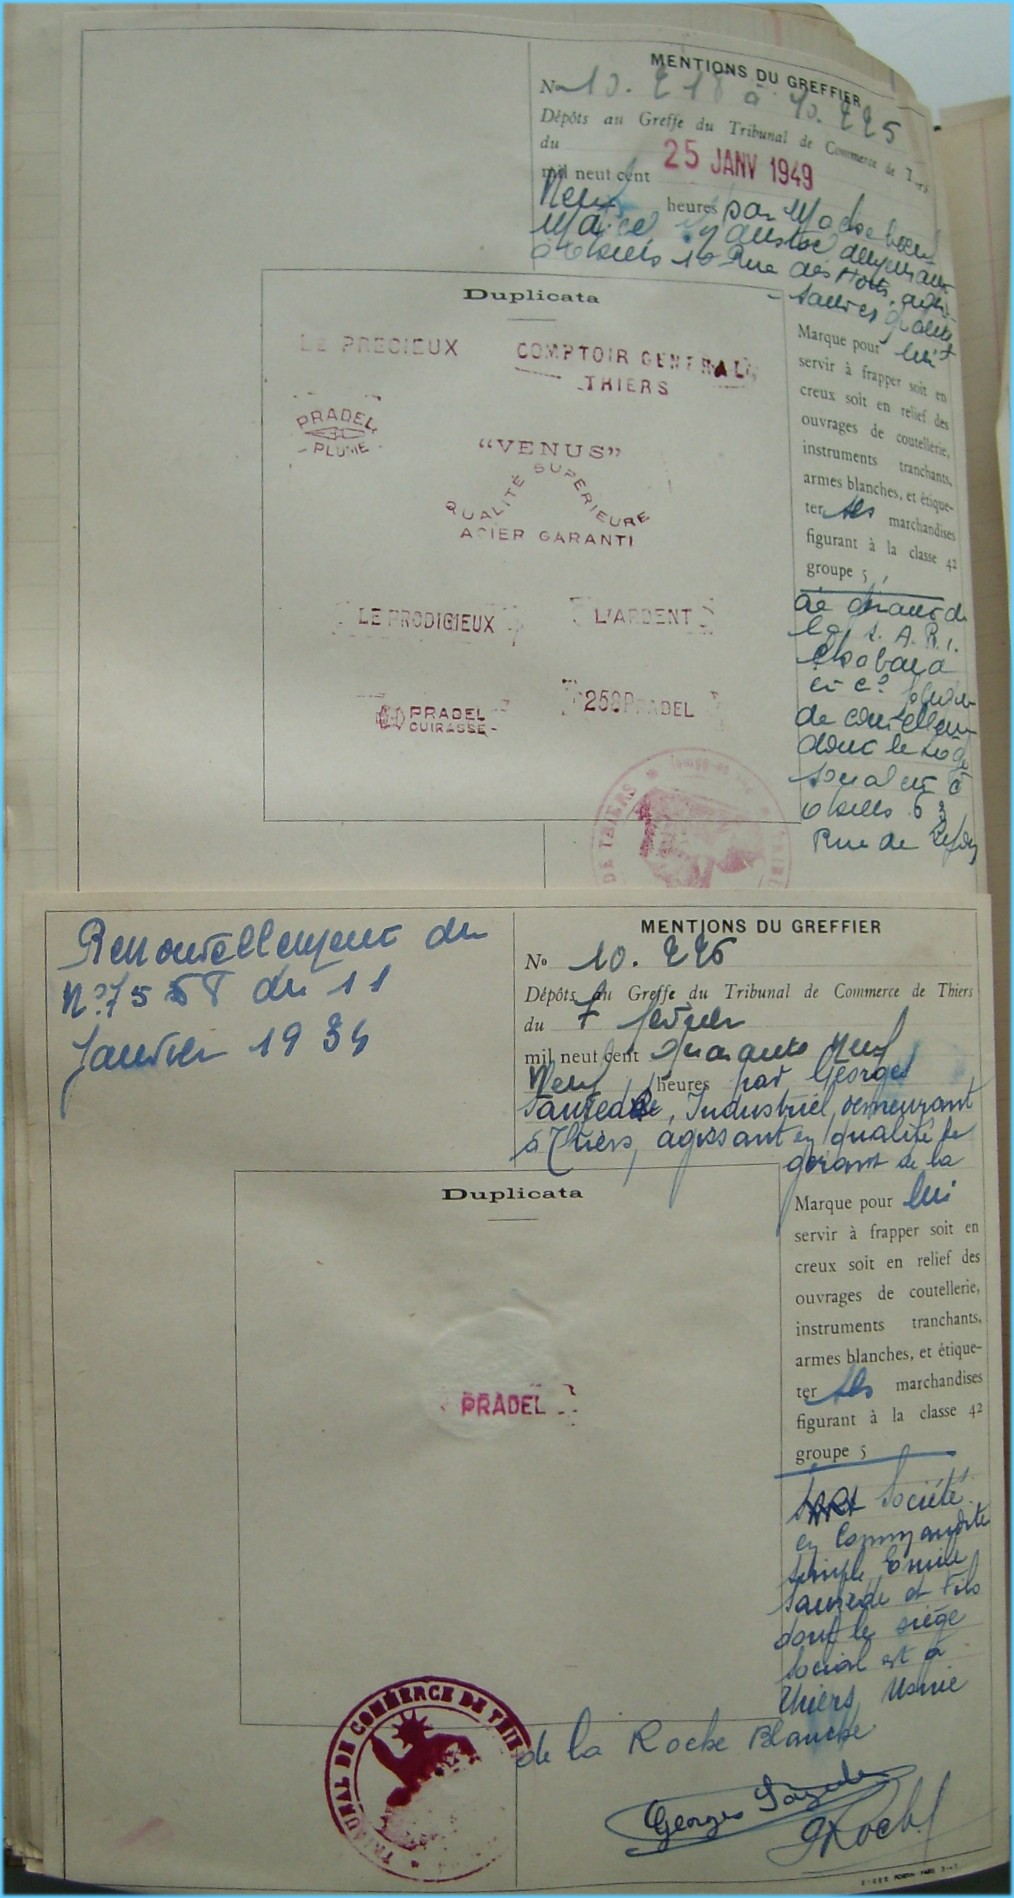 MENTIONS DU GREFFIER
No 10. 218 à 10. 225
Dépôts au Greffe du Tribunal de Commerce de Thiers
du 25 JANV 1949
mil neuf cent
Neuf heures par
à Thiers 10 Rue des
Duplicata
LE PRECIEUX
COMPTOIR GENERAL
THIERS
PRADEL
- PLUME -
"VENUS"
QUALITÉ SUPERIEURE
ACIER GARANTI
LE PRODIGIEUX
L'ARDENT
PRADEL
CUIRASSE-
258 PRADEL
qualité
Marque pour lui
servir à frapper soit en
creux soit en relief des
ouvrages de coutellerie,
instruments tranchants,
armes blanches, et étique-
ter ses marchandises
figurant à la classe 42
groupe 5
de gérant de
la S. A. R. L.
Chabana
et Cº
de coutellerie
dont le siège
social est à
Thiers 63
Rue de
DE THIERS
MENTIONS DU GREFFIER
Renouvellement du
Nº 7558 du 11
Janvier 1934
No 10. 226
Dépôts au Greffe du Tribunal de Commerce de Thiers
du 7 février
mil neuf cent quarante neuf
Neuf heures par Georges
Sauzedde, Industriel, demeurant
à Thiers, agissant en qualité de
gérant de la
Duplicata
PRADEL
Marque pour lui
servir à frapper soit en
creux soit en relief des
ouvrages de coutellerie,
instruments tranchants,
armes blanches, et étique-
ter ses marchandises
figurant à la classe 42
groupe 5
SARL Société
en Commandite
simple Emile
Sauzedde et Fils
dont le siège
social est à
Thiers Usine
de la Roche Blanche
TRIBUNAL DE COMMERCE DE THIERS
Georges Sauzedde